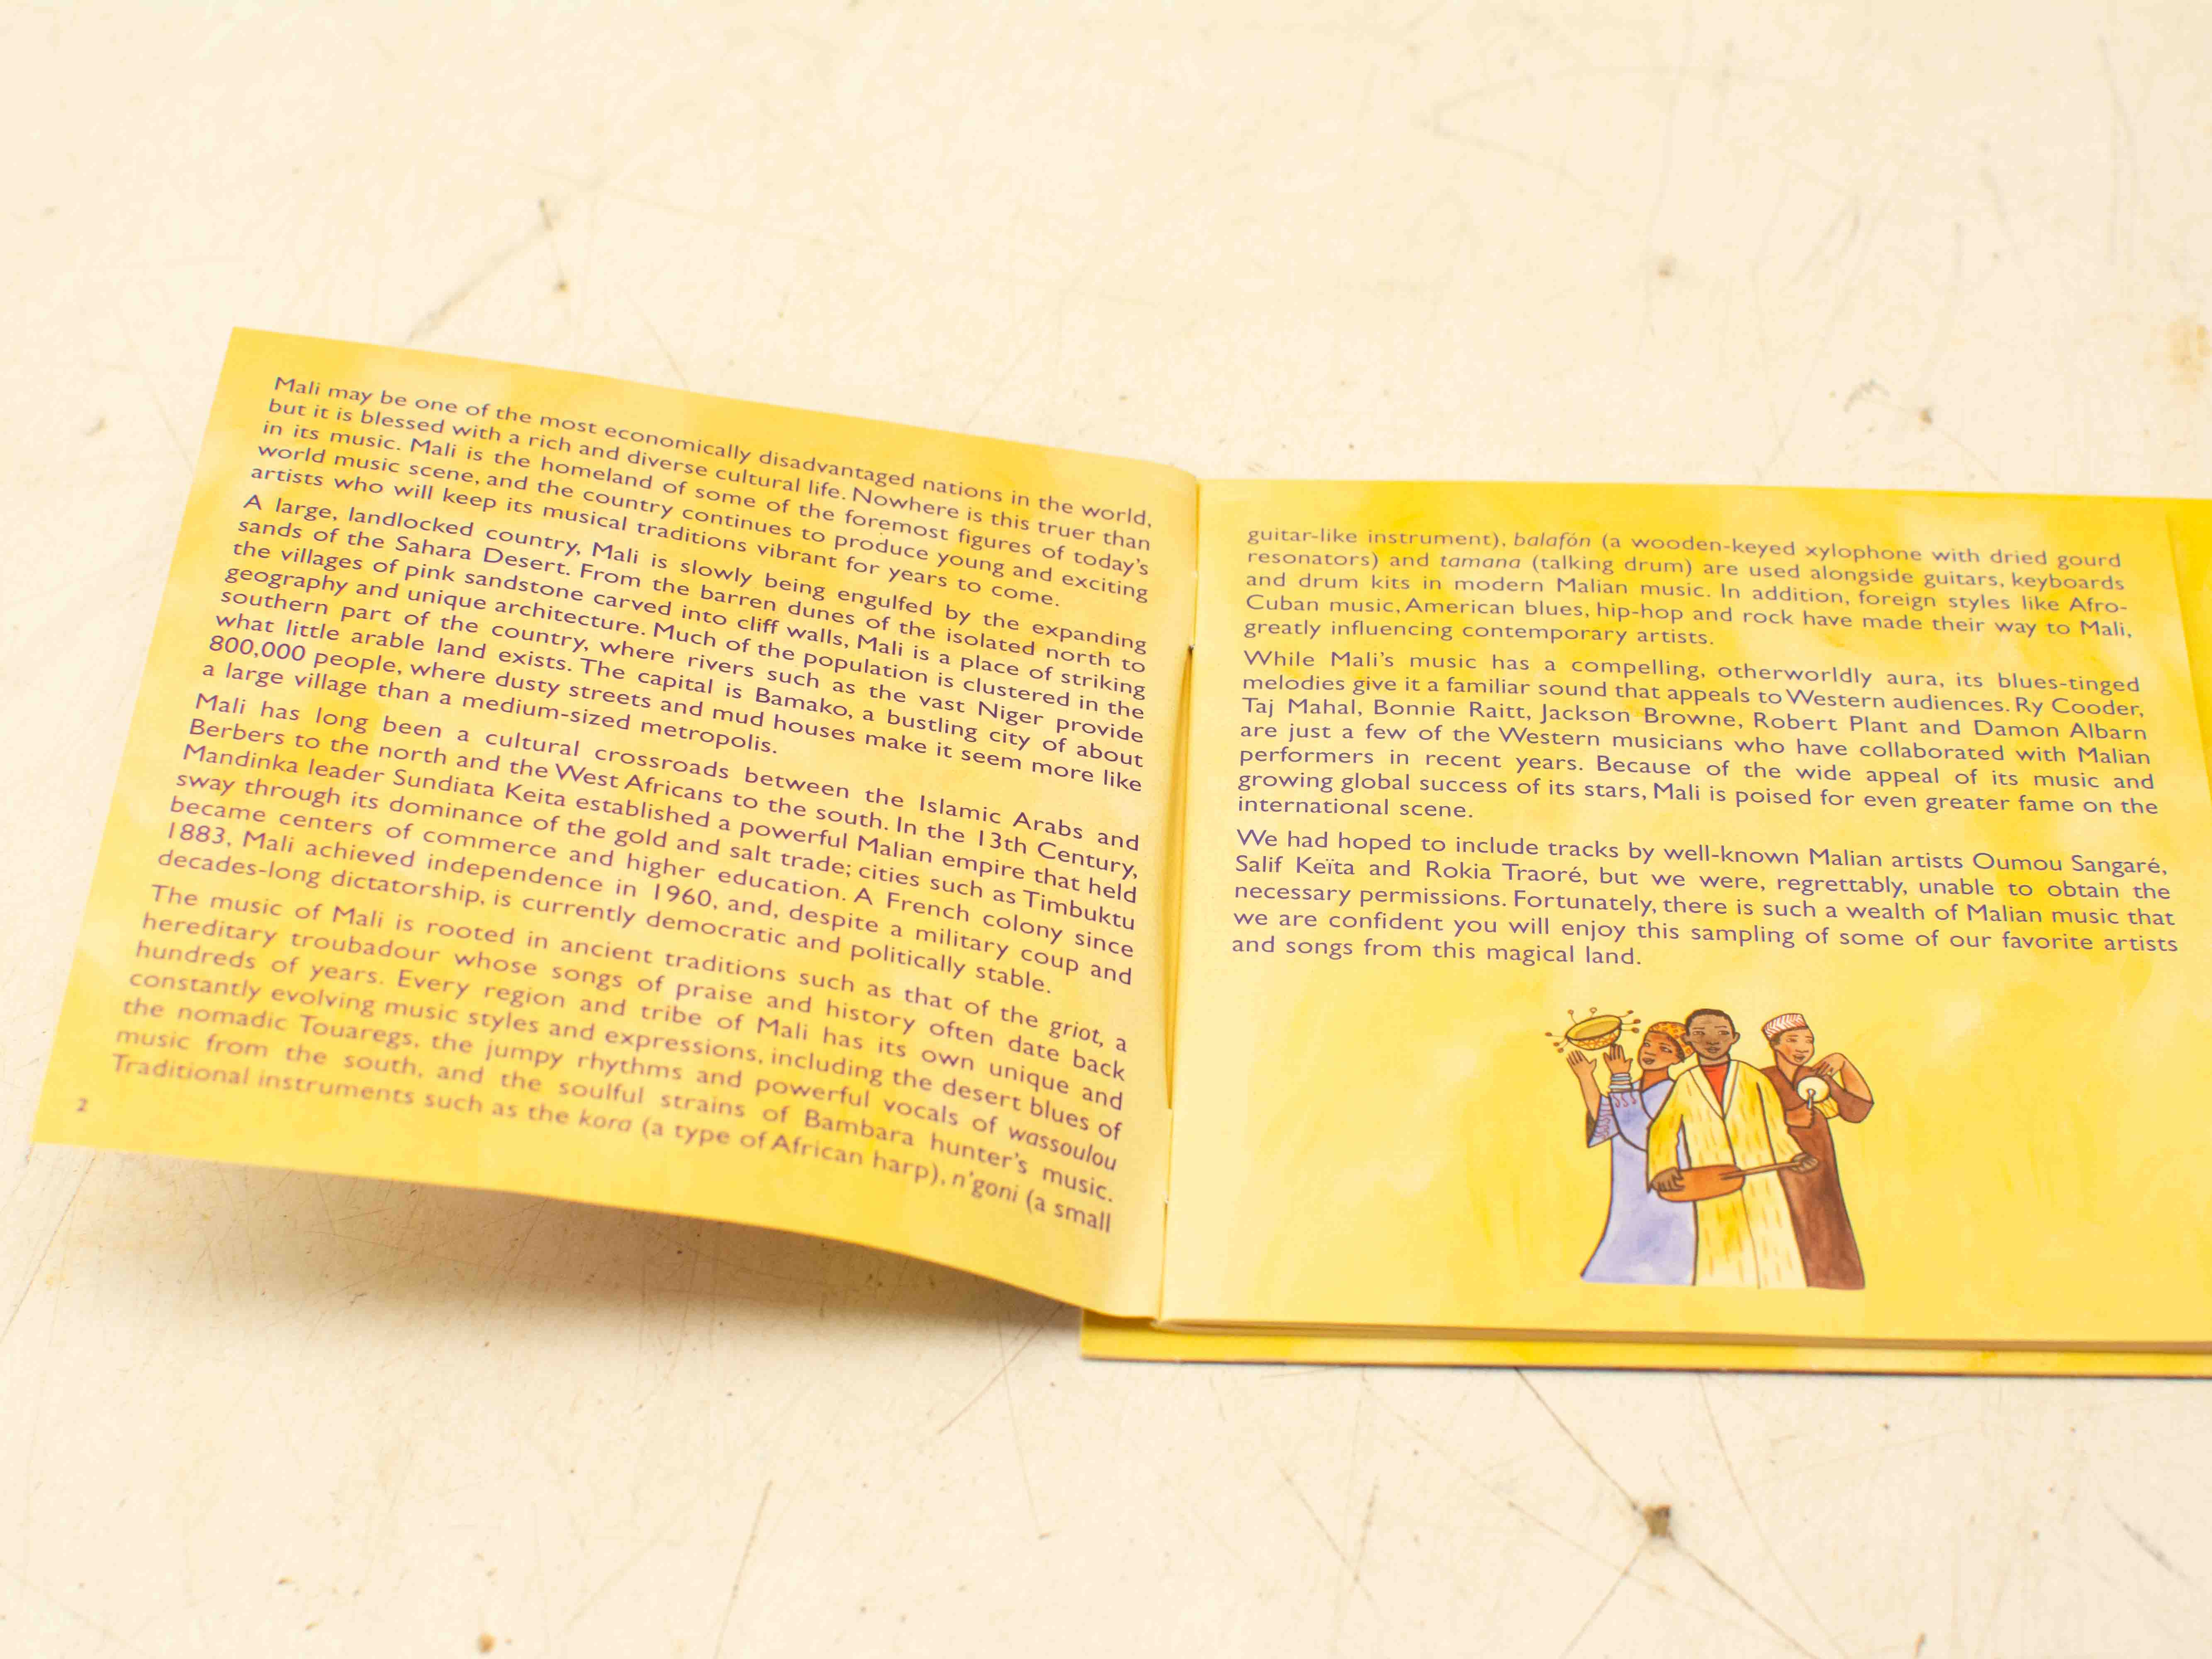 Mali may be one of the most economically disadvantaged nations in the world,
but it is blessed with a rich and diverse cultural life. Nowhere is this truer than
in its music. Mali is the homeland of some of the foremost figures of today's
world music scene, and the country continues to produce young and exciting
artists who will keep its musical traditions vibrant for years to come.
A large, landlocked country, Mali is slowly being engulfed by the expanding
sands of the Sahara Desert. From the barren dunes of the isolated north to
the villages of pink sandstone carved into cliff walls, Mali is a place of striking
geography and unique architecture. Much of the population is clustered in the
southern part of the country, where rivers such as the vast Niger provide
what little arable land exists. The capital is Bamako, a bustling city of about
800,000 people, where dusty streets and mud houses make it seem more like
a large village than a medium-sized metropolis.
Mali has long been a cultural crossroads between the Islamic Arabs and
Berbers to the north and the West Africans to the south. In the 13th Century,
Mandinka leader Sundiata Keita established a powerful Malian empire that held
sway through its dominance of the gold and salt trade; cities such as Timbuktu
became centers of commerce and higher education. A French colony since
1883, Mali achieved independence in 1960, and, despite a military coup and
decades-long dictatorship, is currently democratic and politically stable.
The music of Mali is rooted in ancient traditions such as that of the griot, a
hereditary troubadour whose songs of praise and history often date back
hundreds of years. Every region and tribe of Mali has its own unique and
constantly evolving music styles and expressions, including the desert blues of
the nomadic Touaregs, the jumpy rhythms and powerful vocals of wassoulou
music from the south, and the soulful strains of Bambara hunter's music.
Traditional instruments such as the kora (a type of African harp), n'goni (a small
2
guitar-like instrument), balafón (a wooden-keyed xylophone with dried gourd
resonators) and tamana (talking drum) are used alongside guitars, keyboards
and drum kits in modern Malian music. In addition, foreign styles like Afro-
Cuban music, American blues, hip-hop and rock have made their way to Mali,
greatly influencing contemporary artists.
While Mali's music has a compelling, otherworldly aura, its blues-tinged
melodies give it a familiar sound that appeals to Western audiences. Ry Cooder,
Taj Mahal, Bonnie Raitt, Jackson Browne, Robert Plant and Damon Albarn
are just a few of the Western musicians who have collaborated with Malian
performers in recent years. Because of the wide appeal of its music and
growing global success of its stars, Mali is poised for even greater fame on the
international scene.
We had hoped to include tracks by well-known Malian artists Oumou Sangaré,
Salif Keïta and Rokia Traoré, but we were, regrettably, unable to obtain the
necessary permissions. Fortunately, there is such a wealth of Malian music that
we are confident you will enjoy this sampling of some of our favorite artists
and songs from this magical land.